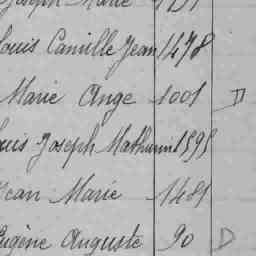 Joseph Marie
Louis Camille Jean 1478
Marie Ange 1001 D
Louis Joseph Mathurin 1595
Jean Marie 1481
Eugène Auguste 90 D